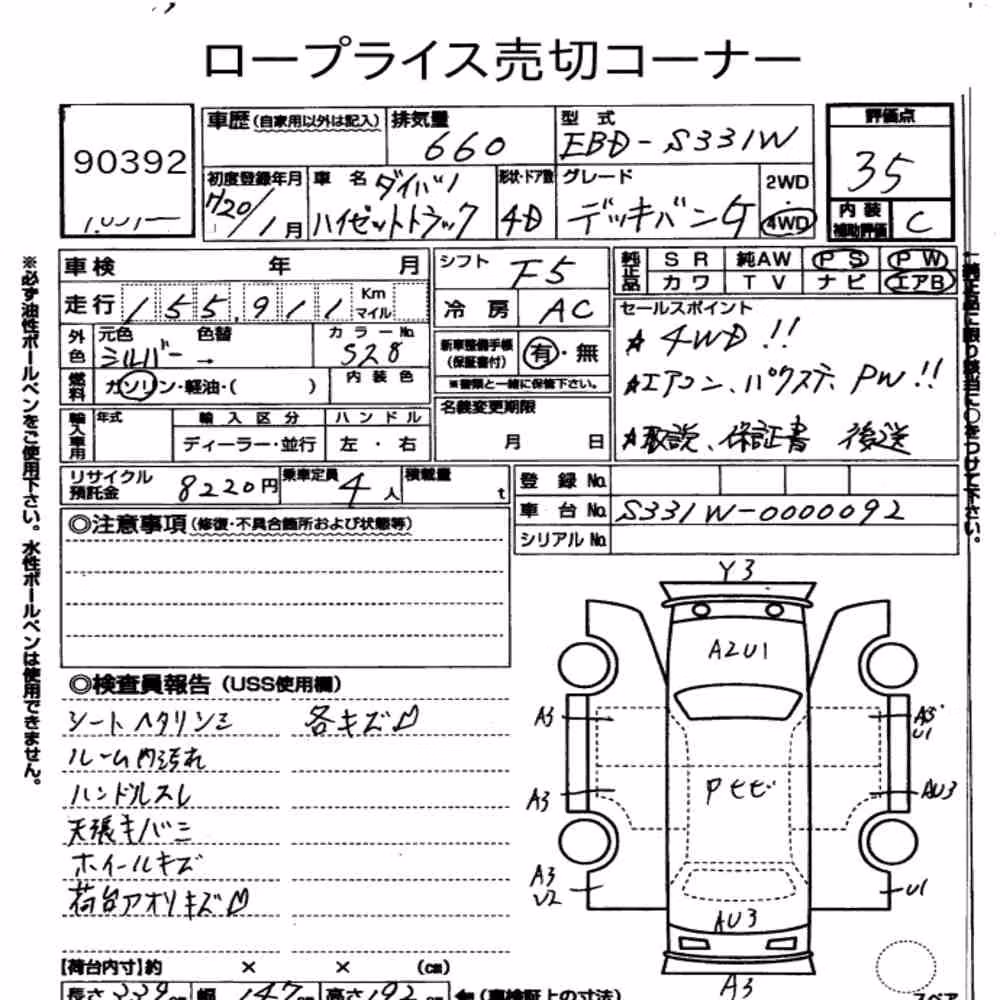 ロープライス売切コーナー
90392
車歴(自家用以外は記入)
排気量
660
型式
EBD-S331W
評価点
35
内装
補助評価
C
初度登録年月
H20/1月
車名
ダイハツ
ハイゼットトラック
形状・ドア数
4D
グレード
デッキバンG
2WD
4WD
車検 年 月
走行 155,911 Km マイル
シフト F5
冷房 AC
純正品 SR 純AW PS PW
カワ TV ナビ エアB
外色 元色 色替 カラーNo.
シルバー → S28
燃料 ガソリン・軽油・( )
内装色
新車整備手帳
(保証書付)
有・無
※書類と一緒に保管下さい。
セールスポイント
★4WD!!
★エアコン、パワステ、PW!!
★取説、保証書 後送
輸入車用 年式 輸入区分 ハンドル
ディーラー・並行 左・右
名義変更期限
月 日
リサイクル
預託金
8220円
乗車定員 4人
積載量 t
登録No.
車台No. S331W-0000092
シリアルNo.
◎注意事項(修復・不具合箇所および状態等)
◎検査員報告(USS使用欄)
シートヘタリシミ 各キズ凹
ルーム内汚れ
ハンドルスレ
天張キバミ
ホイールキズ
荷台アオリキズ凹
Y3
A2U1
A3
A3
U1
Pモビ
A3
AU3
A3
U2
U1
AU3
A3
【荷台内寸】約 × × (cm)
長さ339cm 幅147 高さ192cm
(車検証上の寸法)
スペア
※必ず油性ボールペンをご使用下さい。水性ボールペンは使用できません。
純正品に限り該当に○をつけて下さい。